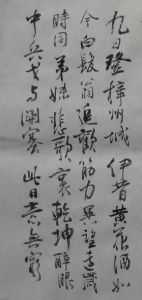 九日登梓州城 伊昔黄花酒如
今白髮翁追歡筋力異望遠歲
時同弟妹悲歌裏乾坤醉眼
中兵戈与關塞此日意無窮